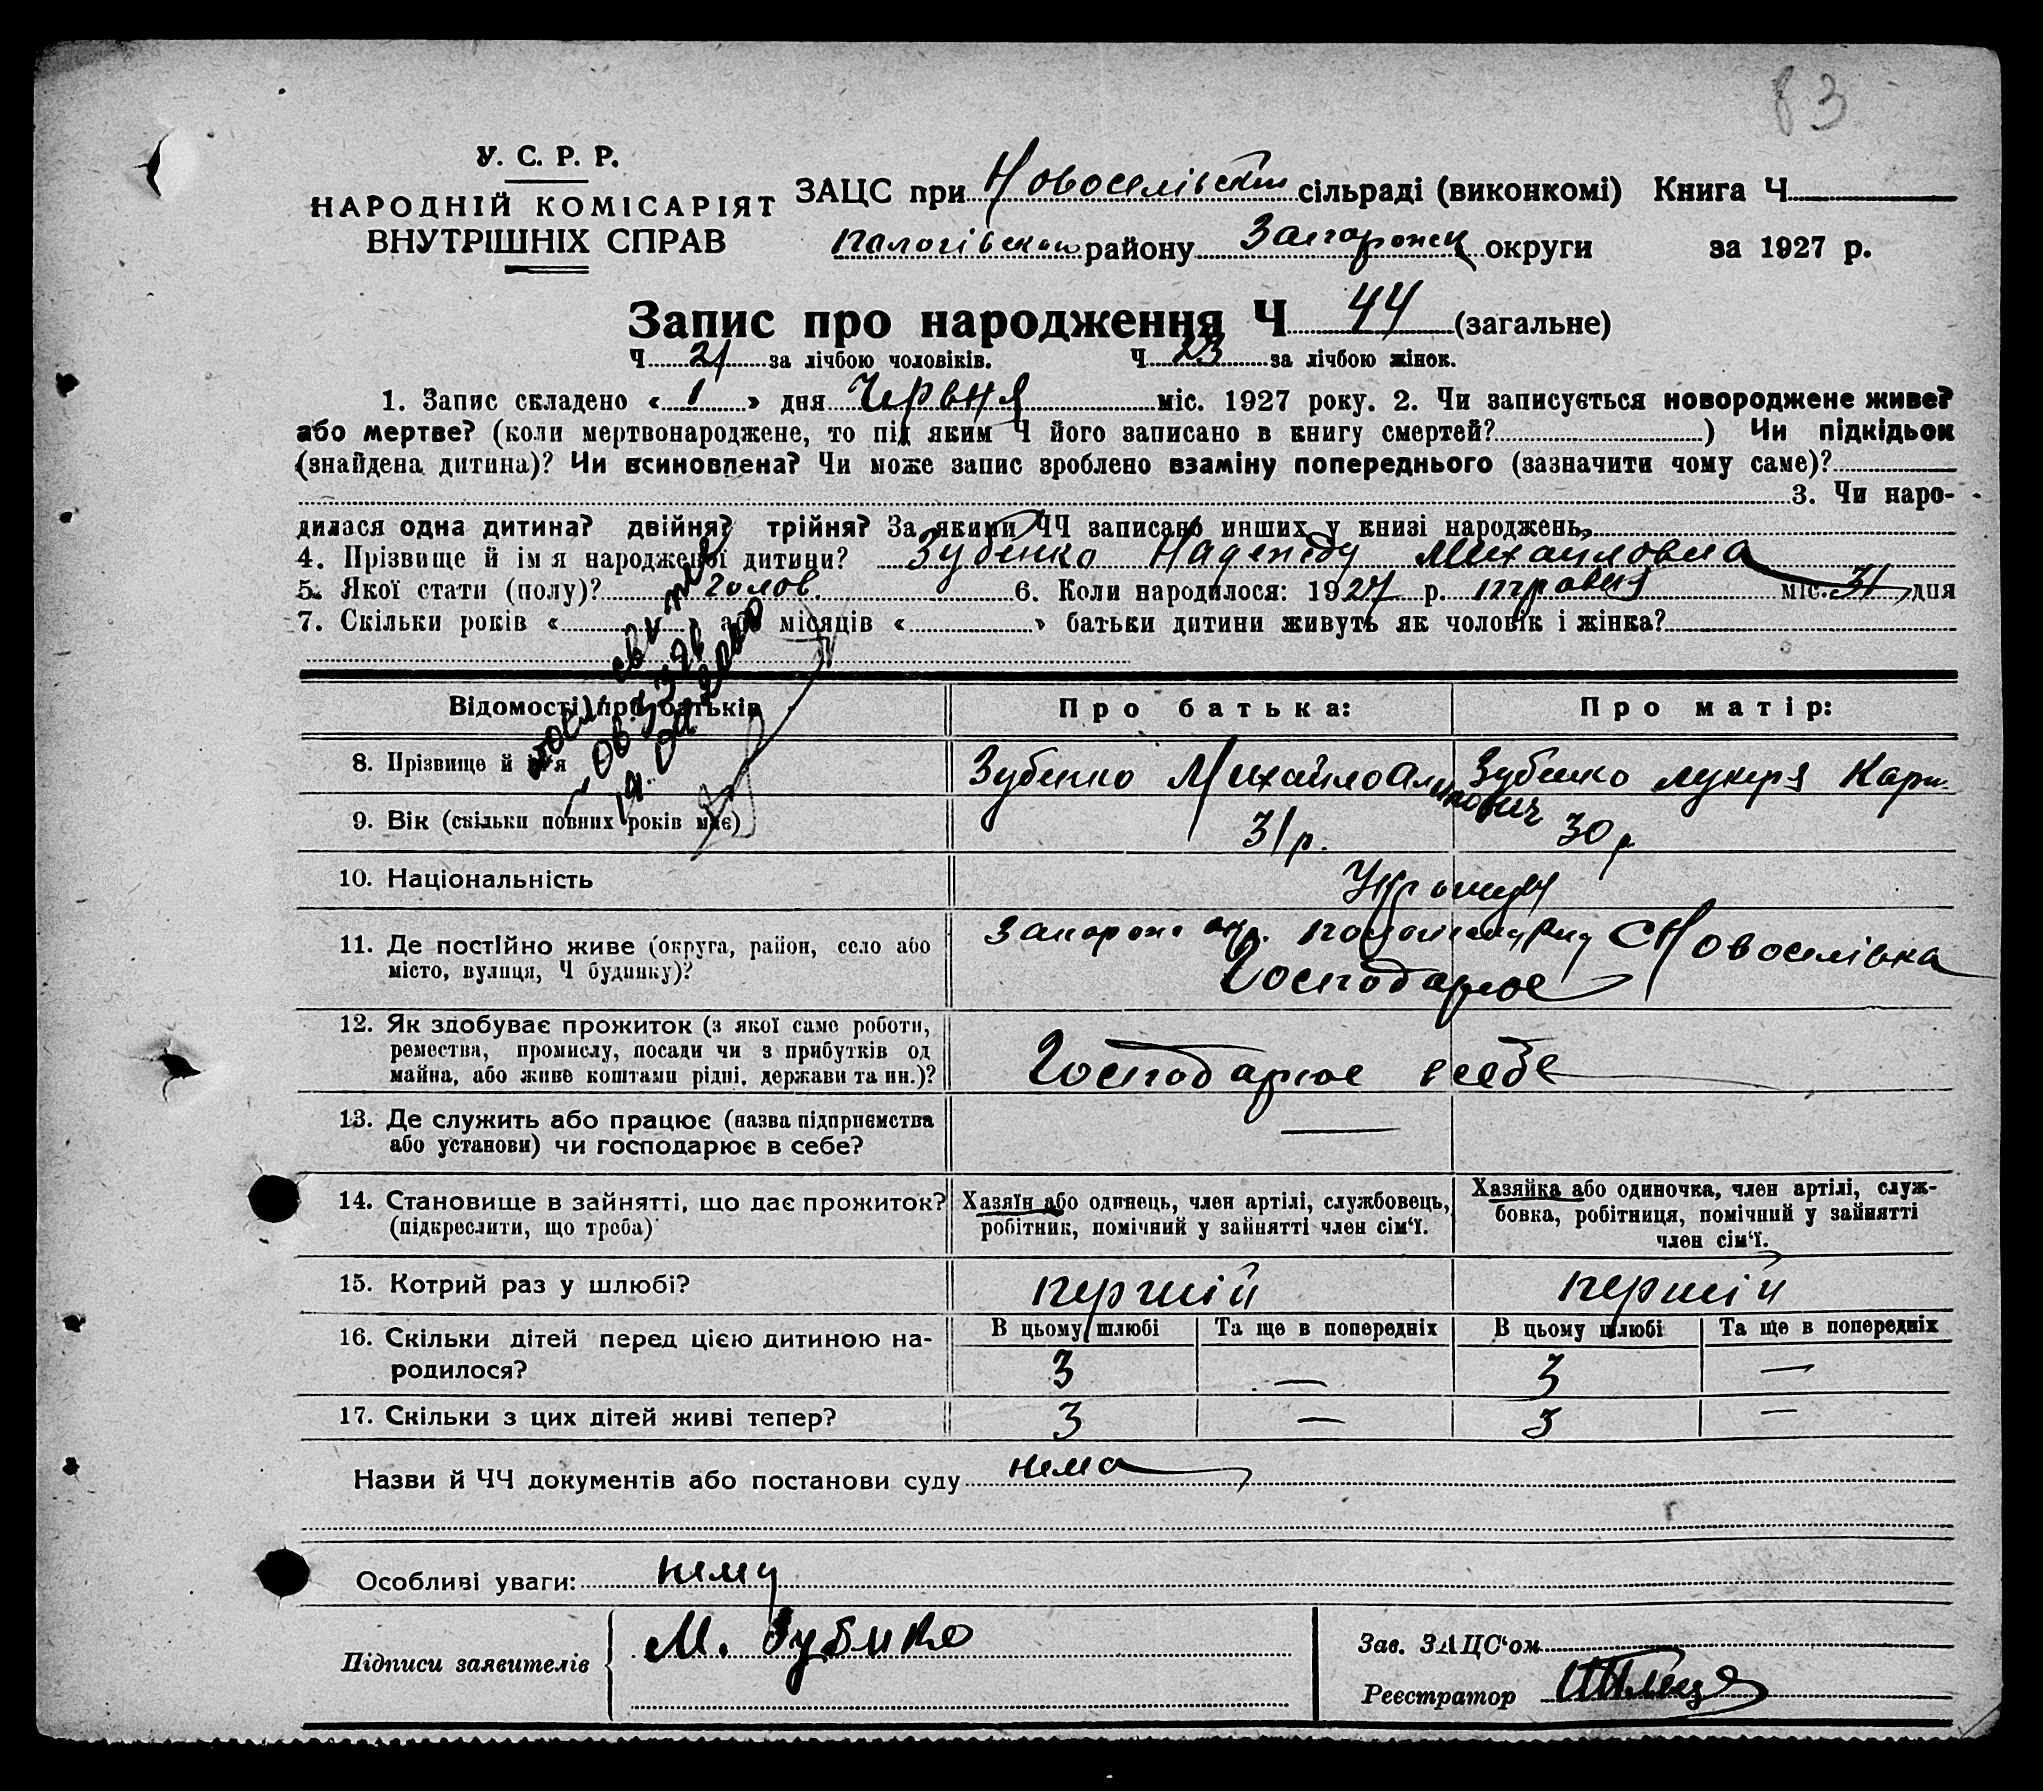 83
У. С. Р. Р.
НАРОДНІЙ КОМІСАРІЯТ
ВНУТРІШНІХ СПРАВ
ЗАЦС при Новоселівскій сільраді (виконкомі) Книга Ч
Пологівском району Запорожск округи за 1927 р.
Запис про народження Ч 44 (загальне)
Ч 21 за лічбою чоловіків. Ч 23 за лічбою жінок.
1. Запис складено « 1 » дня Червня міс. 1927 року. 2. Чи записується новороджене живе?
або мертве? (коли мертвонароджене, то під яким Ч його записано в книгу смертей? ) Чи підкідьок
(знайдена дитина)? Чи всиновлена? Чи може запис зроблено взаміну попереднього (зазначити чому саме)?
3. Чи наро-
дилася одна дитина? двійня? трійня? За якими ЧЧ записано инших у книзі народжень,
4. Прізвище й ім я народженої дитини? Зубенко Надежду Михайловна
5. Якої стати (полу)? голов. 6. Коли народилося: 1927 р. травня міс. 31 дня
7. Скільки років « » або місяців « » батьки дитини живуть як чоловік і жінка?
Відомості про батьків
Про батька:
Про матір:
8. Прізвище й ім я
Зубенко Михайло
Зубенко Лукеря Карп.
9. Вік (скільки повних років має)
31 р.
30 р
10. Національність
11. Де постійно живе (округа, район, село або
місто, вулиця, Ч будинку)?
Запорож окр. с Новоселівка
Господарює
12. Як здобуває прожиток (з якої саме роботи,
ремества, промислу, посади чи з прибутків од
майна, або живе коштами рідні, держави та ин.)?
Господарює в себе
13. Де служить або працює (назва підприємства
або установи) чи господарює в себе?
—
14. Становище в зайнятті, що дає прожиток?
(підкреслити, що треба)
Хазяїн або одинець, член артілі, службовець,
робітник, помічний у зайнятті член сім‘ї.
Хазяйка або одиночка, член артілі, служ-
бовка, робітниця, помічний у зайнятті
член сім‘ї.
15. Котрий раз у шлюбі?
першій
першій
16. Скільки дітей перед цією дитиною на-
родилося?
В цьому шлюбі Та ще в попередніх В цьому шлюбі Та ще в попередніх
3 — 3 —
17. Скільки з цих дітей живі тепер?
3 — 3 —
Назви й ЧЧ документів або постанови суду нема
Особливі уваги: нема
Підписи заявителів
М. Зубнко
Зав. ЗАЦС‘ом
Реєстратор